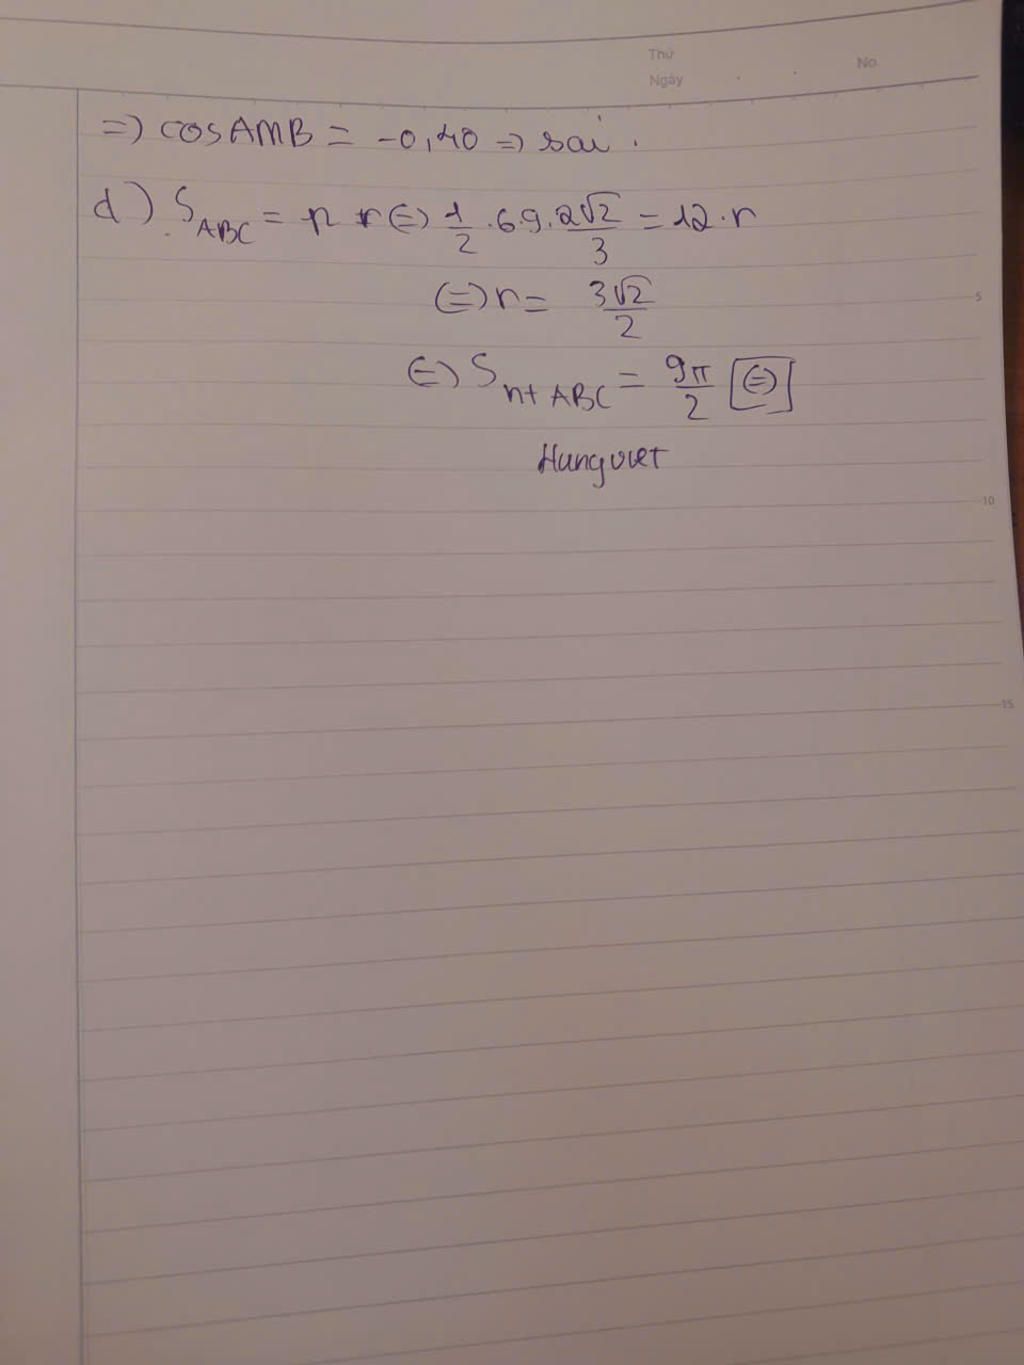 Thứ
Ngày . . No
=> cosAMB = -0,40 => sai.
d) S_ABC = p r (=) 1/2 .6.9. 2√2/3 = 12.r
(=) r = 3√2/2
5
(=) S_nt ABC = 9π/2 [(=)]
Hungviet
10
15